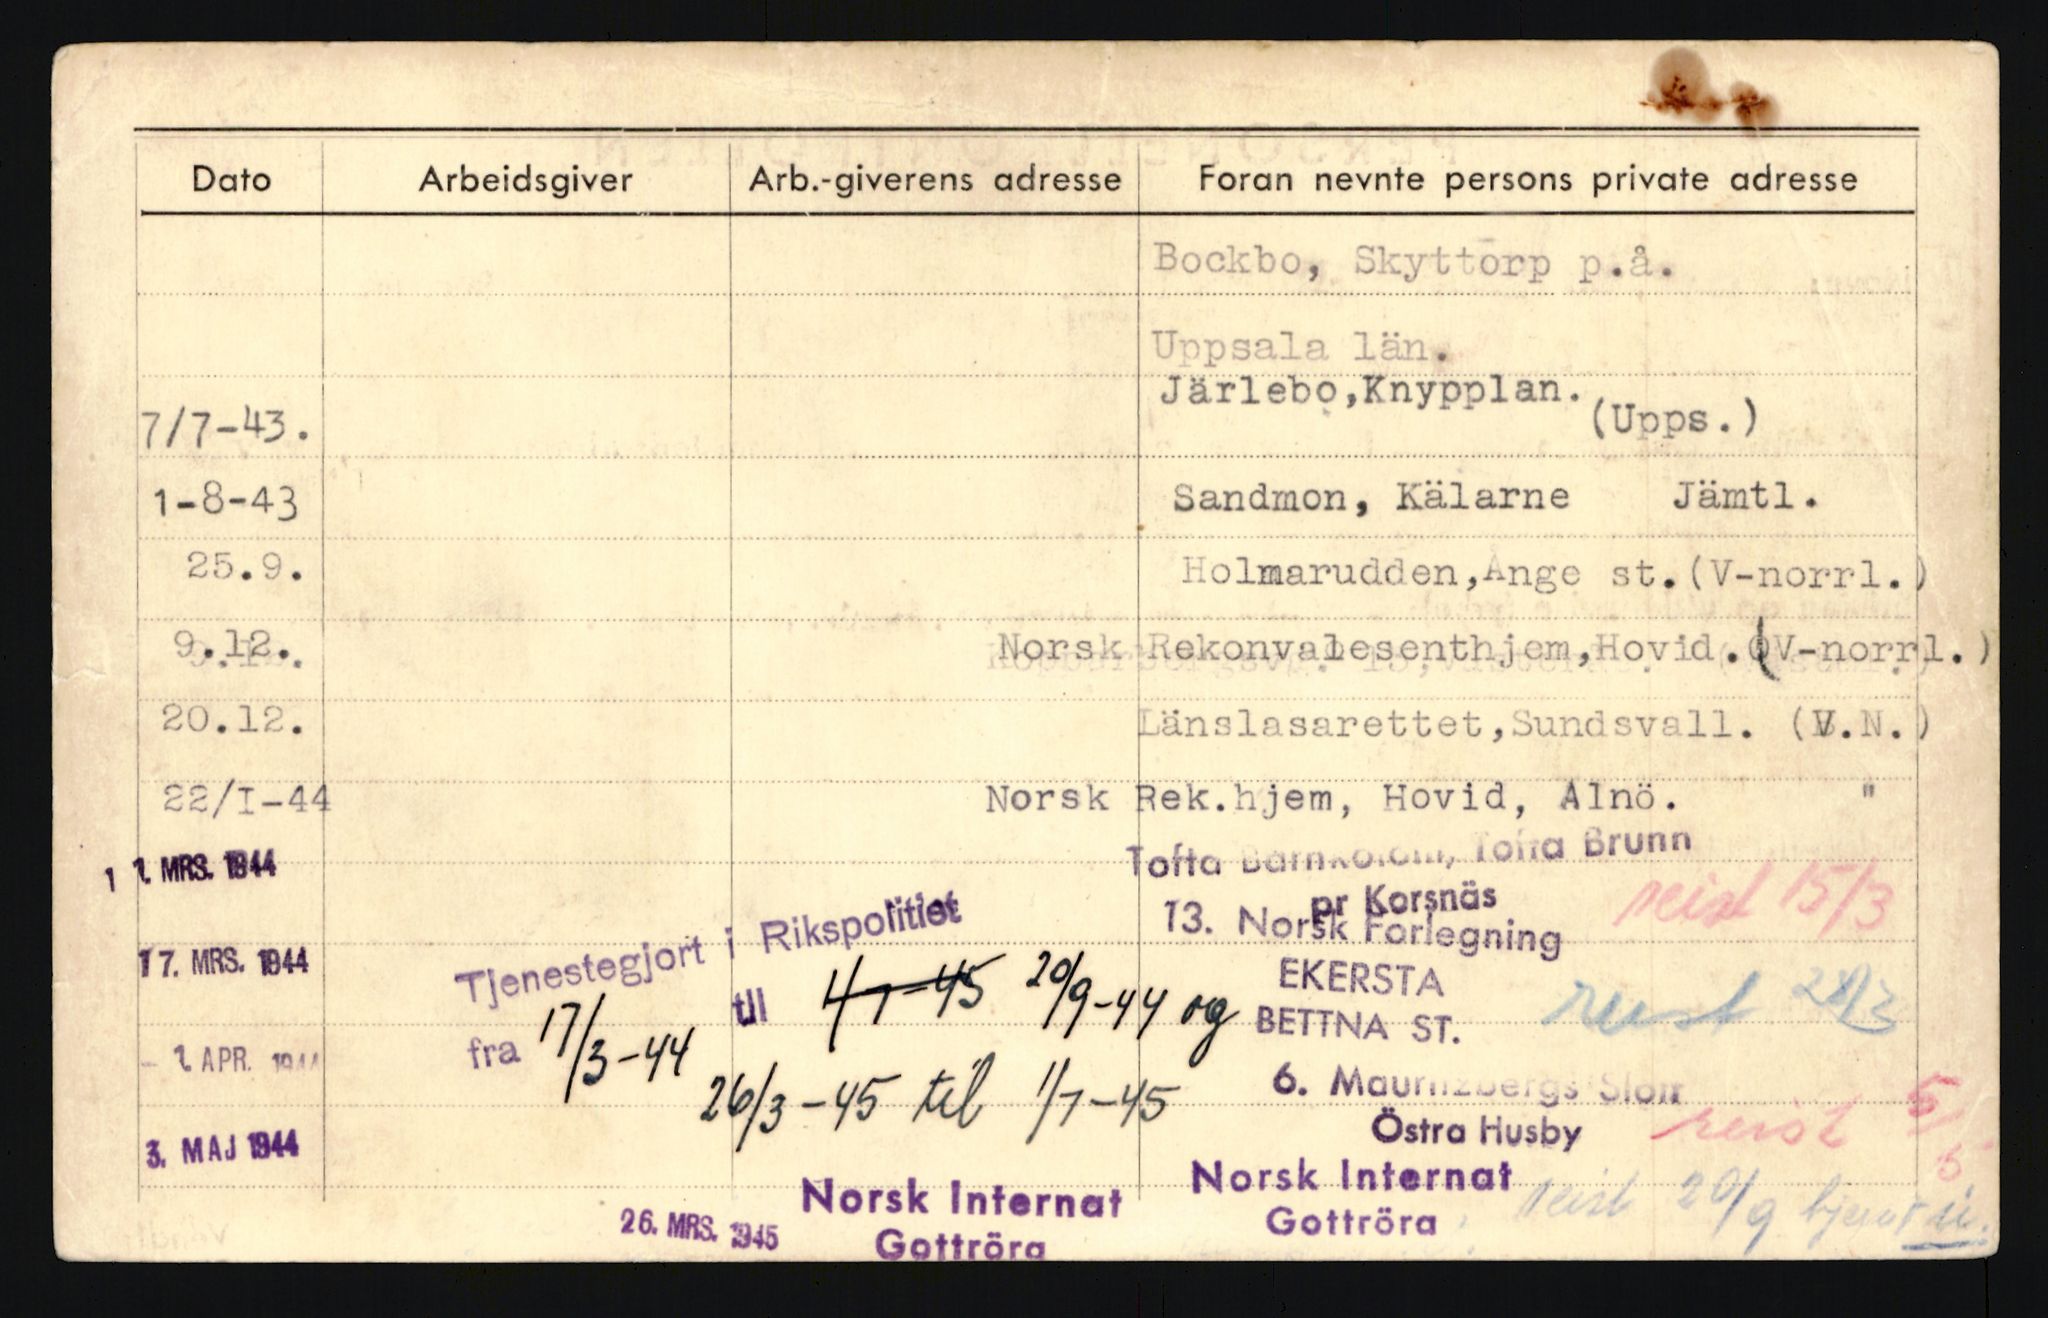 Dato Arbeidsgiver Arb.-giverens adresse Foran nevnte persons private adresse
Bockbo, Skyttorp p.å.
Uppsala län.
Järlebo,Knypplan.
7/7-43. (Upps.)
1-8-43 Sandmon, Kälarne Jämtl.
25.9. Holmarudden,Ange st.(V-norrl.)
9.12. Norsk Rekonvalesenthjem,Hovid.(V-norrl.)
20.12. Länslasarettet,Sundsvall. (V.N.)
22/I-44 Norsk Rek.hjem, Hovid, Alnö. "
1 1. MRS. 1944 Tofta Barnkoloni, Tofta Brunn
pr Korsnäs reist 15/3
17. MRS. 1944 13. Norsk Forlegning
EKERSTA
BETTNA ST. reist 28/3
Tjenestegjort i Rikspolitiet
fra 17/3-44 til 4-7-45 20/9-44 og
26/3-45 til 1/7-45
- 1. APR. 1944 6. Mauritzbergs Slott
Östra Husby reist 5/5
3. MAJ 1944 Norsk Internat
Gottröra reist 20/9 hjem
26. MRS. 1945 Norsk Internat
Gottröra